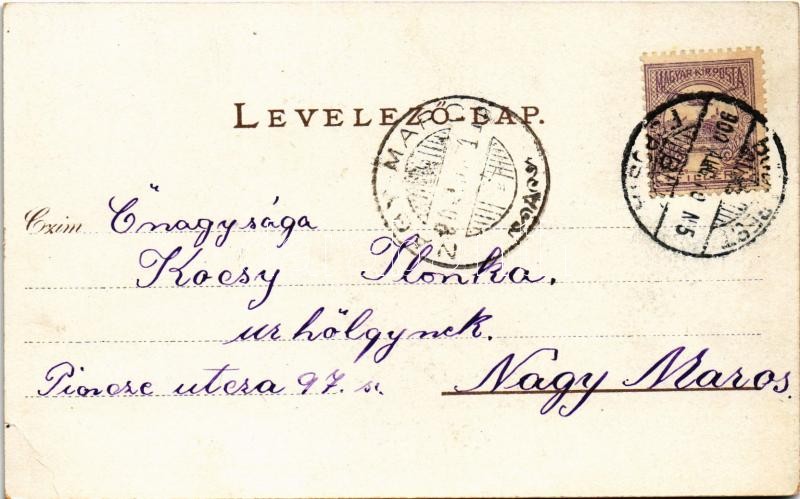 MAGYAR KIR. POSTA
LEVELEZŐ-LAP.
NAGY MAROS
BUDAPEST
Czim Őnagysága
Kocsy Ilonka.
urhölgynek.
utcza 97. sz. Nagy Maros.